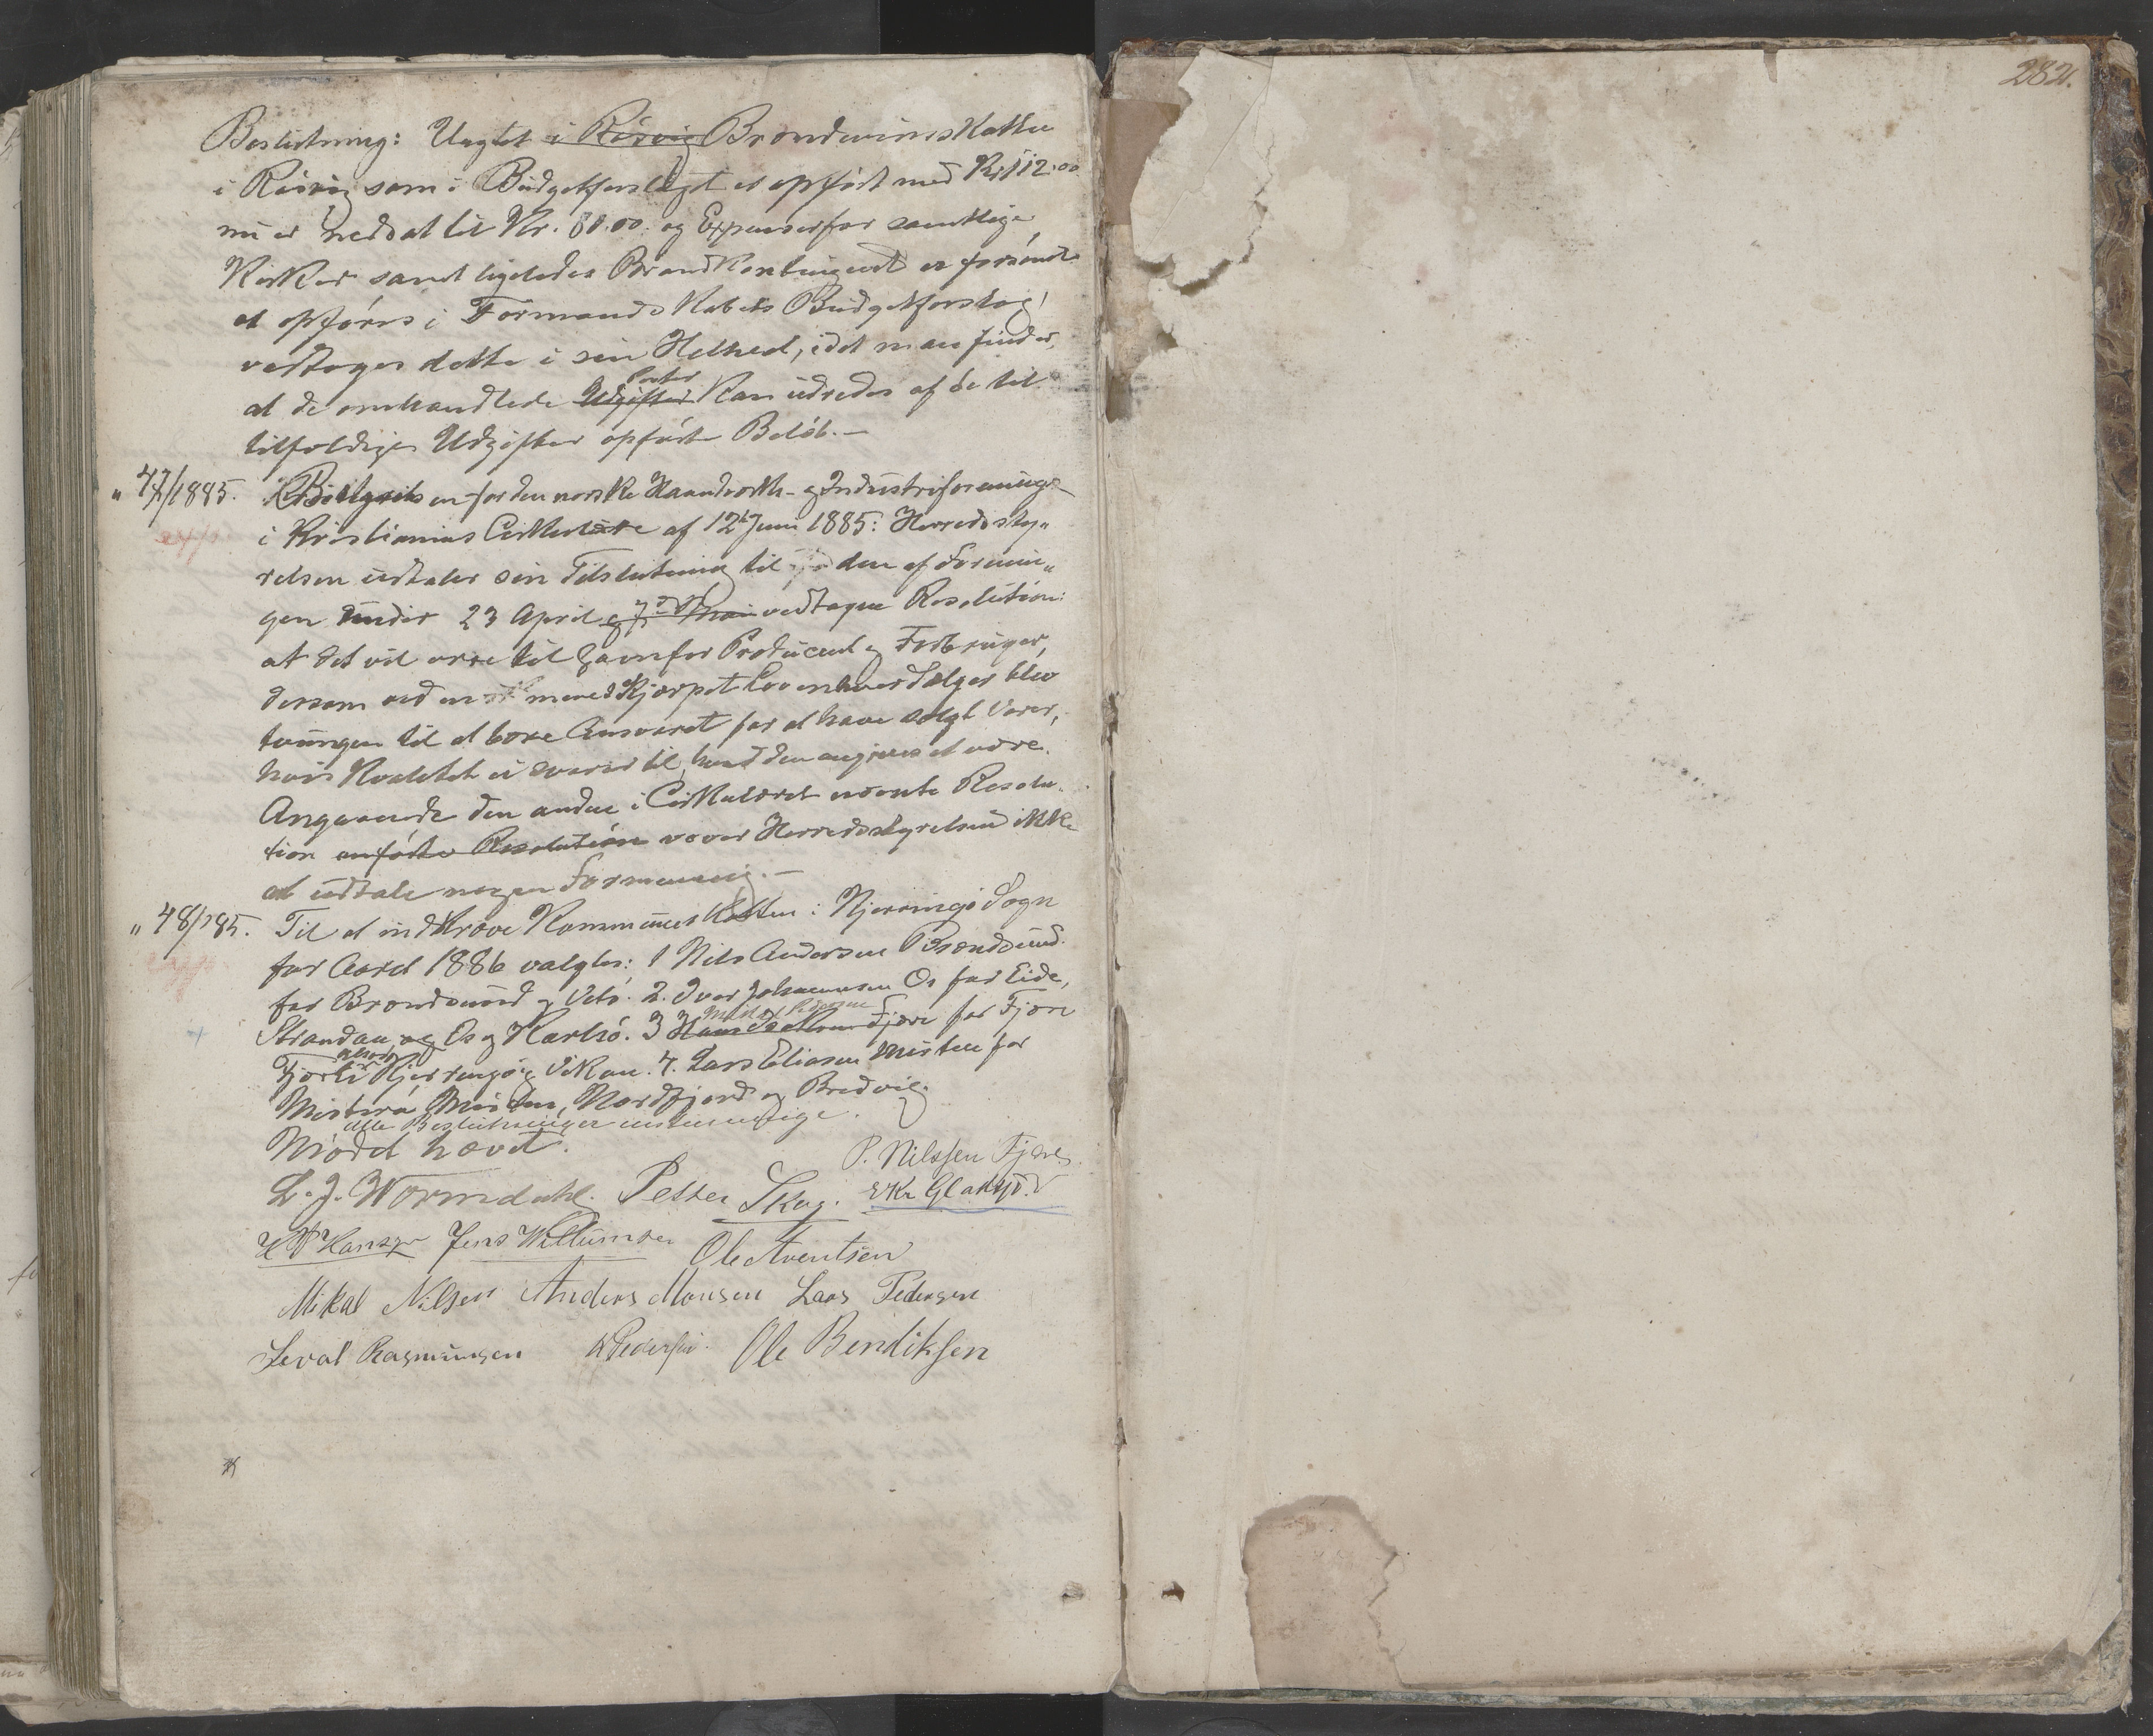 282.
Beslutning: Uagtet i Røsvig Brændevinsskatten
i Røsvig som i Budgetforslaget er opført med Kr 112.00
nu er nedsat til Kr. 80.00. og Expenser for samtlige
Kirker samt ligeledes Brandkontingent er forsømt
at opføres i Formandskabets Budgetforslag,
vedtoges dette i sin Helhed, idet man finder,
at de omhandlede Udgifter Poster kan udredes af de til
tilfældige Udgifter opførte Beløb.-
" 47/1885. for den norske Haandværk- og Industriforenings
i Kristianias Cirkulære af 12te Juni 1885: Herredssty„
relsen udtaler sin Tilslutning til den af Forenin„
gen under 23 April og 7de Mai vedtagne Resolution:
at det vil være til Gavn for Producent og Forbruger,
dersom ved en mere skjærpet Lov enhver Sælger blev
tvungen til at bære Ansvaret for at have solgt Varer,
hvis Kvalitet ei svarer til, hvad den angives at være.
Angaaende den anden i Cirkulæret nævnte Resolu-
tion anførte Resolution vover Herredsstyrelsen ikke
at udtale nogen Formening.-
" 48/85. Til at indkræve Kommuneskatten i Kjerringø Sogn
for Aaret 1886 valgtes: 1 Nils Andersen Brændsund
for Brændsund og Vetø. 2. Iver Johannesen Os for Eide,
Strandaa, og Os og Karlsø. 3 Hans Fjære for Fjære
Fjære Kjerringø og Vikan. 4. Lars Eliasen Misten for
Misten, Nordfjord og Bredvig.
alle Beslutninger enstemmige.
Mødet hævet.
P. Nilssen Fjære.
L. J. Wormdahl. Petter Skag. EKr Glad
H P Hansen Jens Willumsen Ole Aventsen
Mikal Nilsen Anders Monsen Lars Pedersen
Seval Rasmussen A Pedersen. Ole Bendiksen